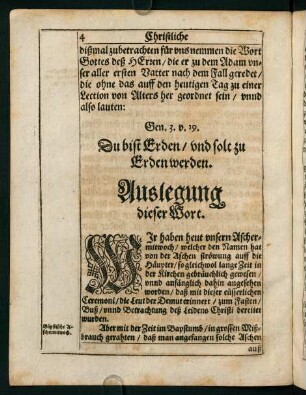 4 Christliche
dißmal zubetrachten für vns nemmen die Wort
Gottes deß HErren / die er zu dem Adam vn-
ser aller ersten Vatter nach dem Fall geredet /
die ohne das auff den heutigen Tag zu einer
Lection von Alters her geordnet sein / vnnd
also lauten:
Gen. 3. v. 19.
Du bist Erden / vnd solt zu
Erden werden.
Auslegung
dieser Wort.
WIr haben heut vnsern Ascher-
mitwoch / welcher den Namen hat
von der Aschen ströwung auff die
Häupter / so gleichwol lange Zeit in
der Kirchen gebräuchlich gewesen /
vnnd anfänglich dahin angesehen
worden / daß mit dieser eüsserlichen
Ceremoni / die Leut der Demut erinnert / zum Fasten /
Buß / vnnd Betrachtung deß Leidens Christi bereitet
wurden.
Bäpstische A-
schermitwoch.
Aber mit der Zeit im Bapstumb / in grossen Miß-
brauch gerahten / daß man angefangen solche Aschen
auß